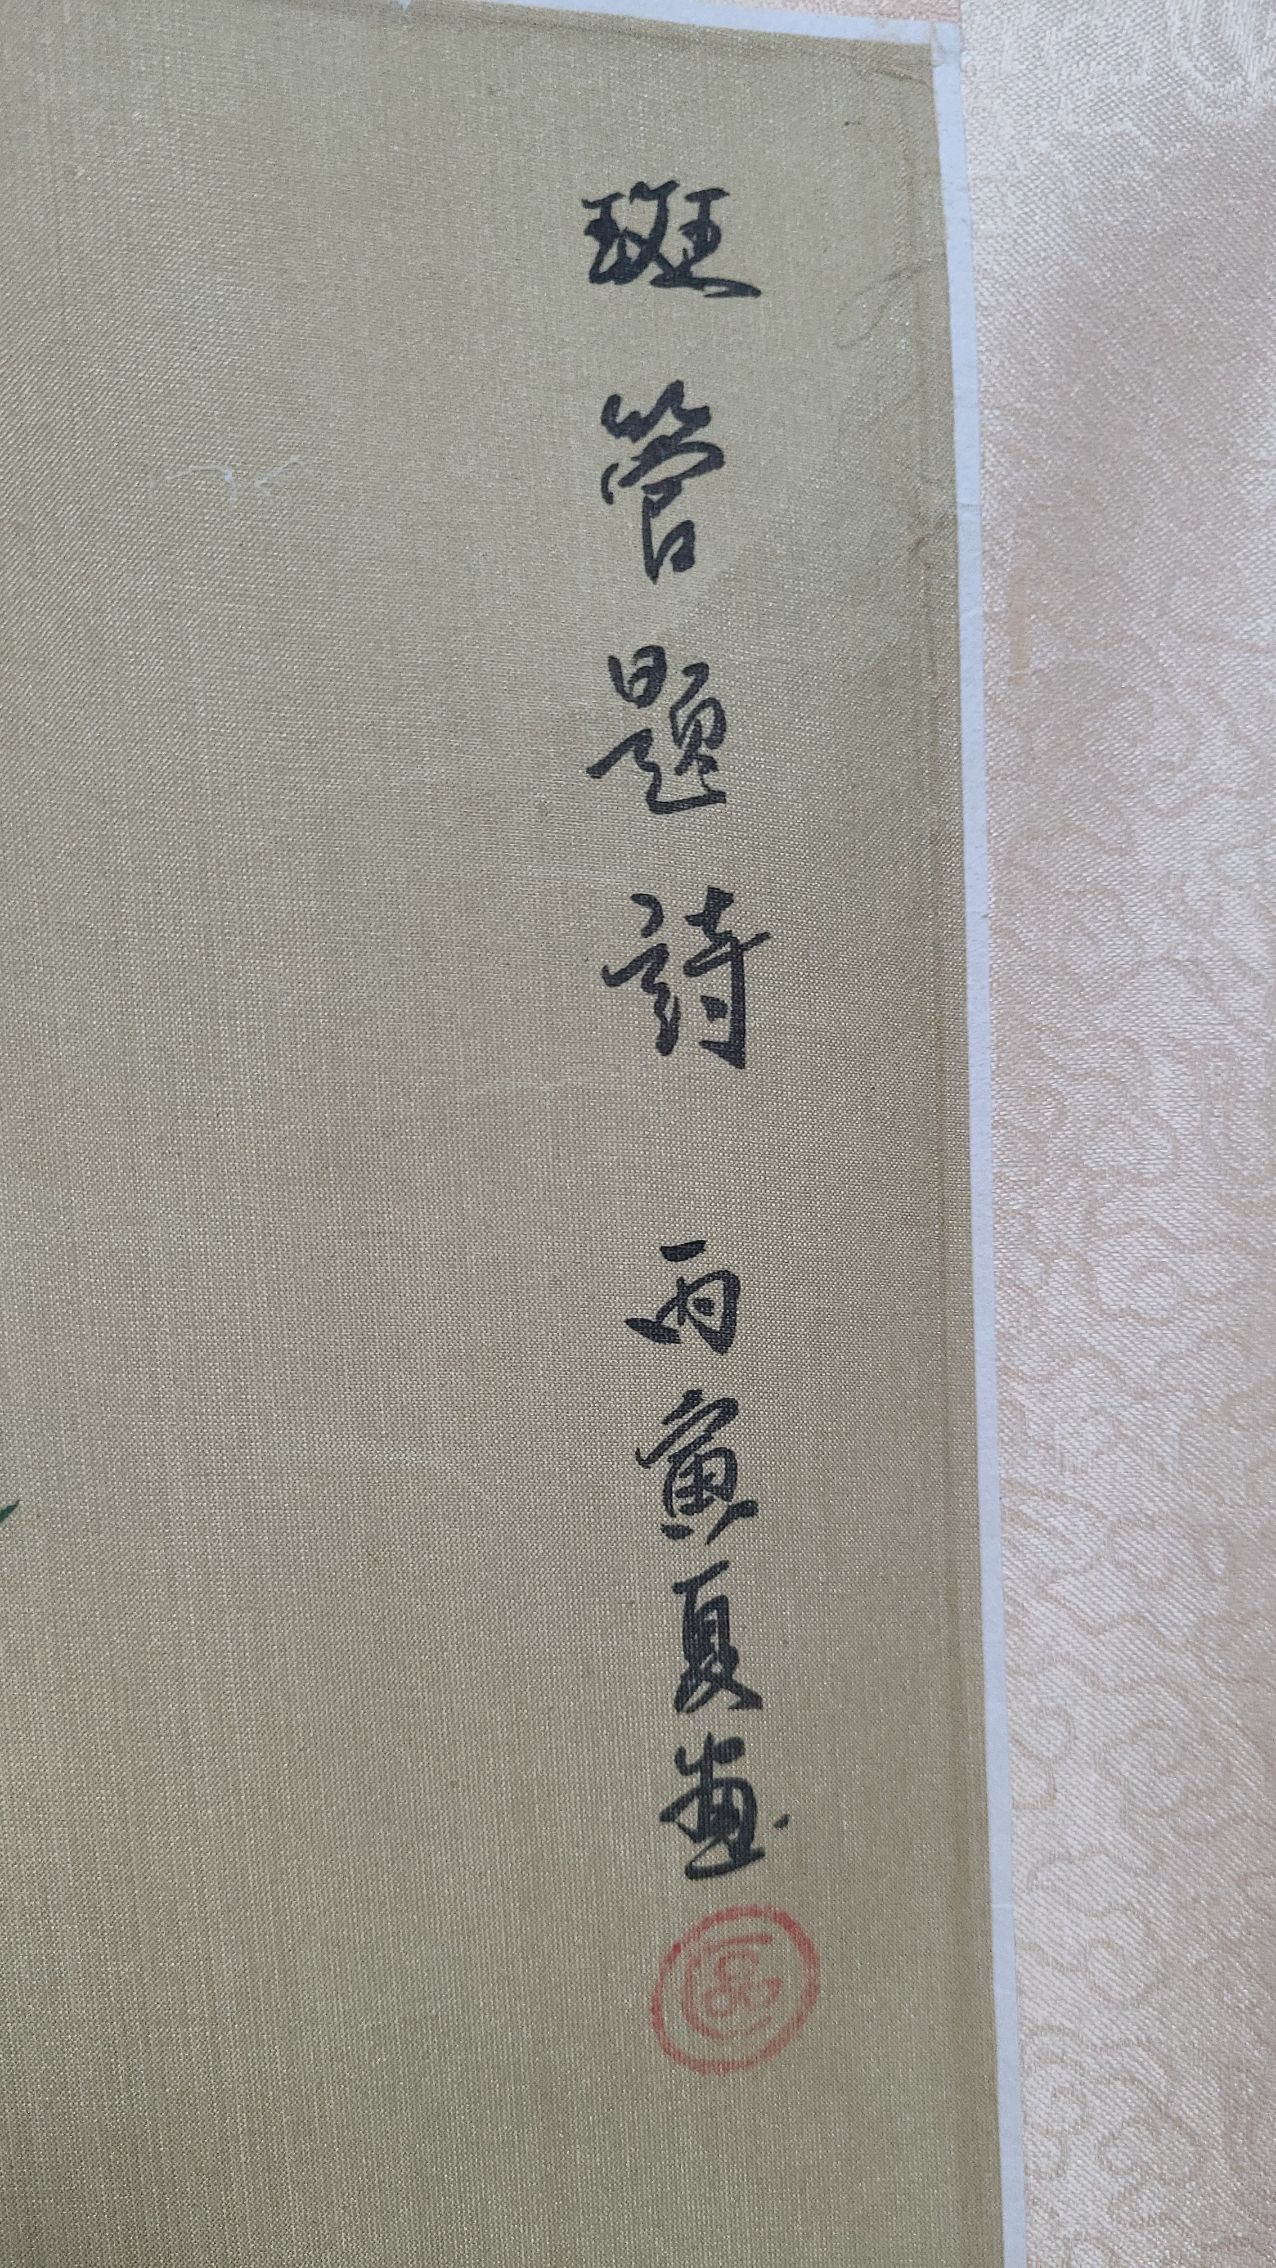 斑管題詩 丙寅夏畫